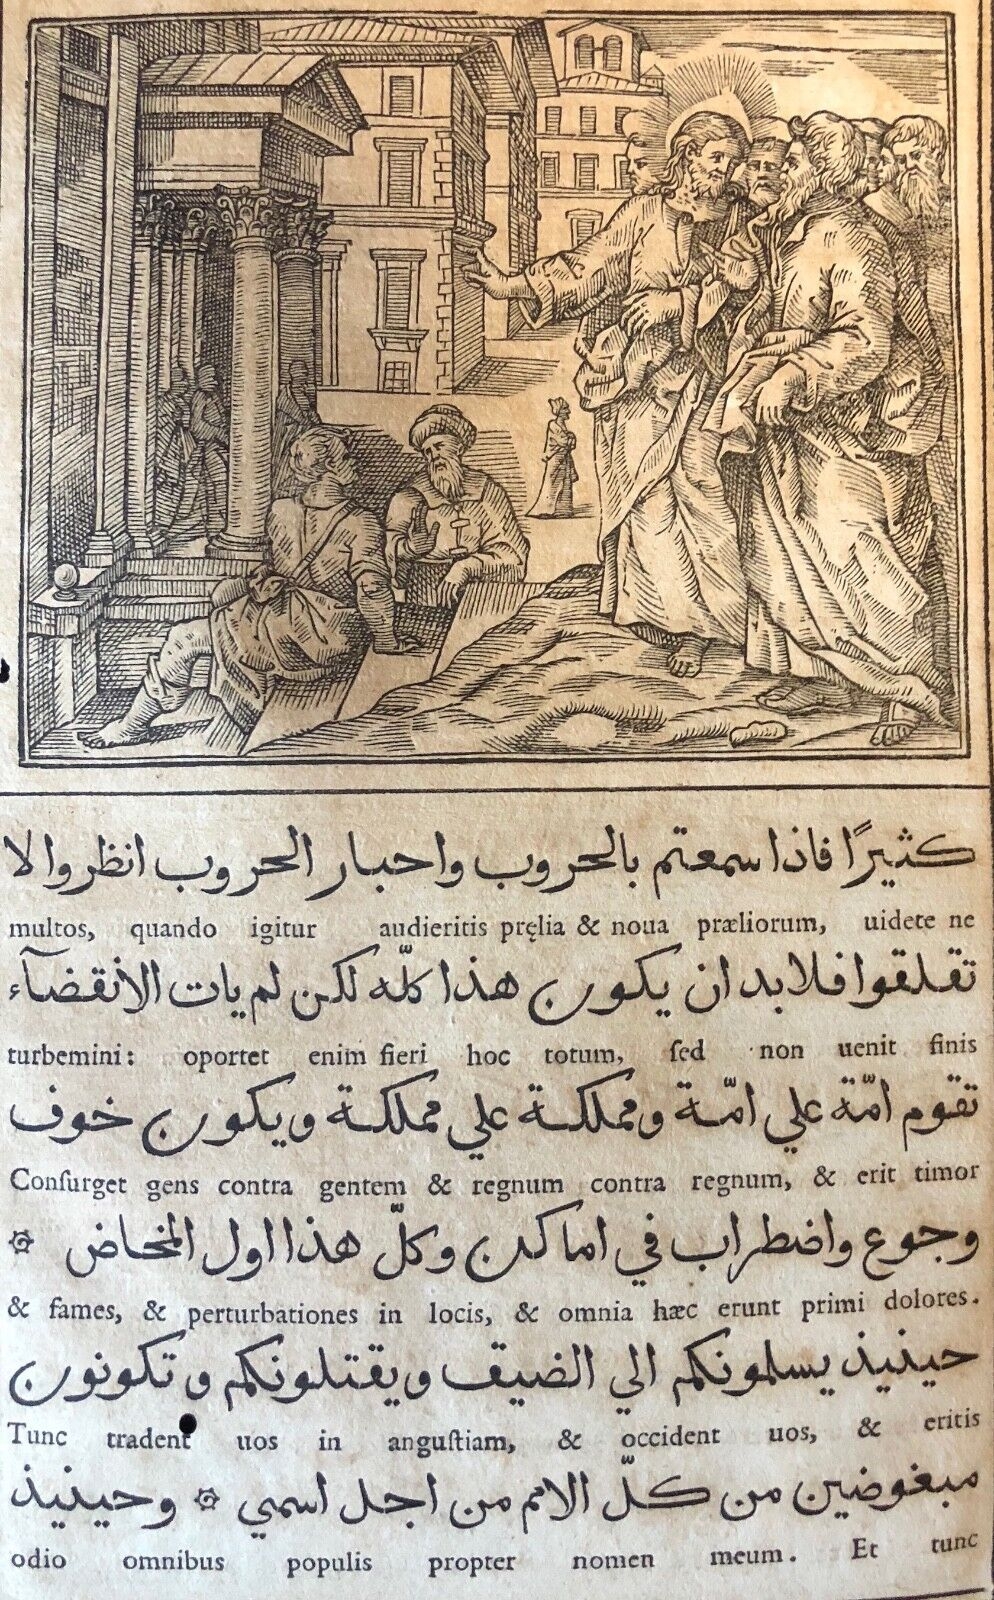 كثيرًا فاذا سمعتم بالحروب واحبار الحروب انظروا لا
multos, quando igitur audieritis pręlia & noua præliorum, uidete ne
تقلقوا فلا بد ان يكون هذا كلّه لكن لم يات الانقضآء
turbemini: oportet enim fieri hoc totum, ſed non uenit finis
تقوم امّة علي امّة ومملكة علي مملكة ويكون خوف
Conſurget gens contra gentem & regnum contra regnum, & erit timor
وجوع واضطراب في اماكن وكلّ هذا اول المخاض ۞
& fames, & perturbationes in locis, & omnia hæc erunt primi dolores.
حينيذ يسلمونكم الي الضيق ويقتلونكم وتكونون
Tunc tradent uos in anguſtiam, & occident uos, & eritis
مبغوضين من كلّ الامم من اجل اسمي ۞ وحينيذ
odio omnibus populis propter nomen meum. Et tunc